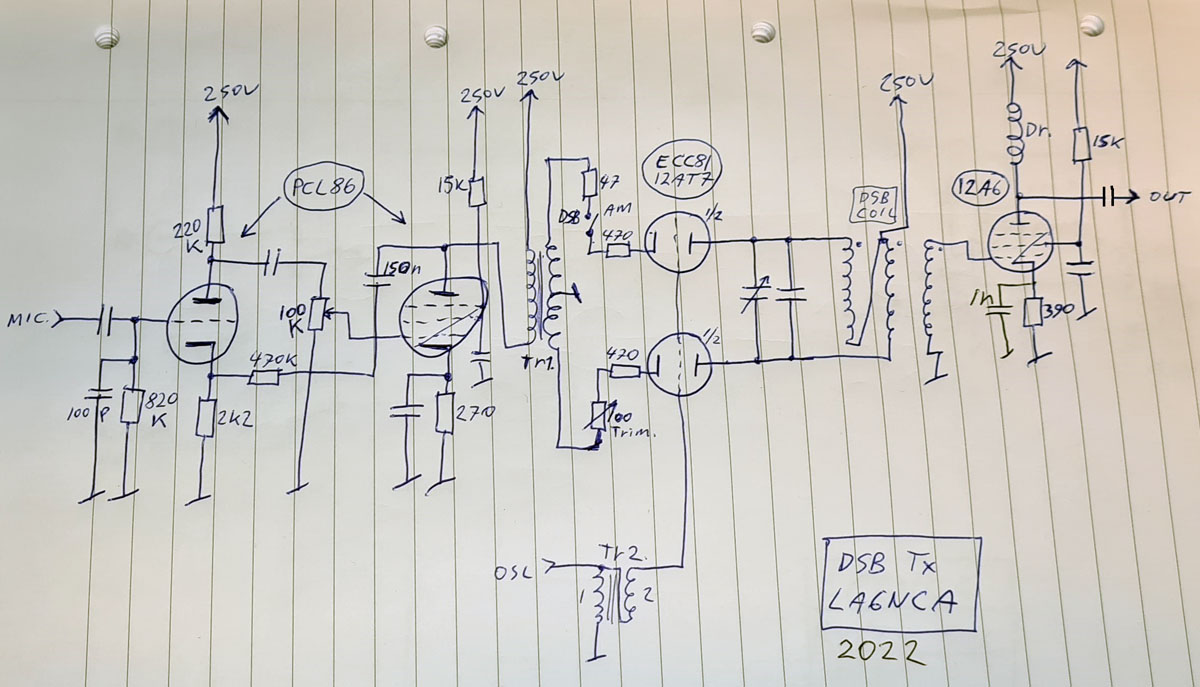 250V
250V
250V
250V
250V
PCL86
ECC81
12AT7
12A6
Dr.
15K
15K
OUT
DSB
COIL
47
DSB
AM
470
1/2
220
K
150n
100
K
MIC.
470K
Tr1.
1n
390
100P
820
K
2K2
270
470
1/2
100
Trim.
OSC
Tr2.
1
2
DSB Tx
LA6NCA
2022